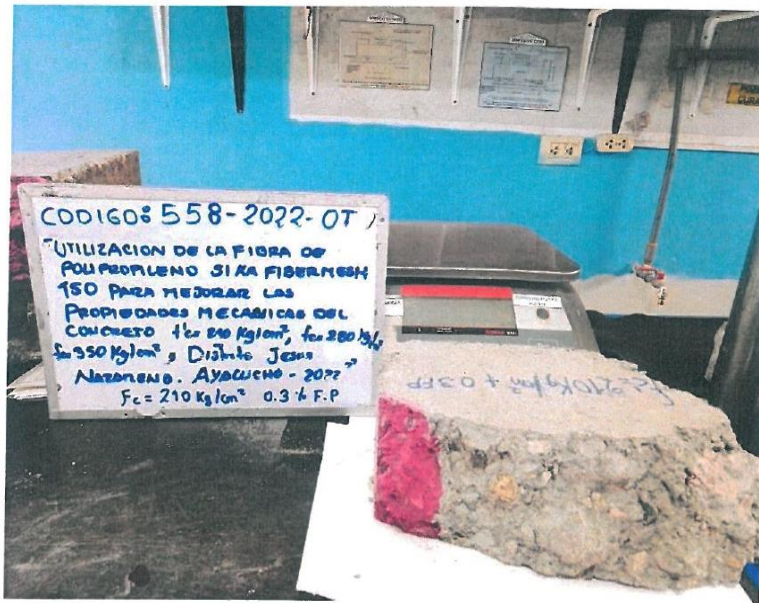 CODIGO: 558-2022-OT
"UTILIZACION DE LA FIBRA DE
POLIPROPILENO SIKA FIBERMESH
150 PARA MEJORAR LAS
PROPIEDADES MECANICAS DEL
CONCRETO f'c= 210 Kg/cm², fc= 280 Kg/
fc= 350 Kg/cm², Distrito Jesus
NAZARENO. AYACUCHO - 2022"
Fc = 210 Kg/cm² 0.3 % F.P
fc= 210 Kg/cm² + 0.3 FP